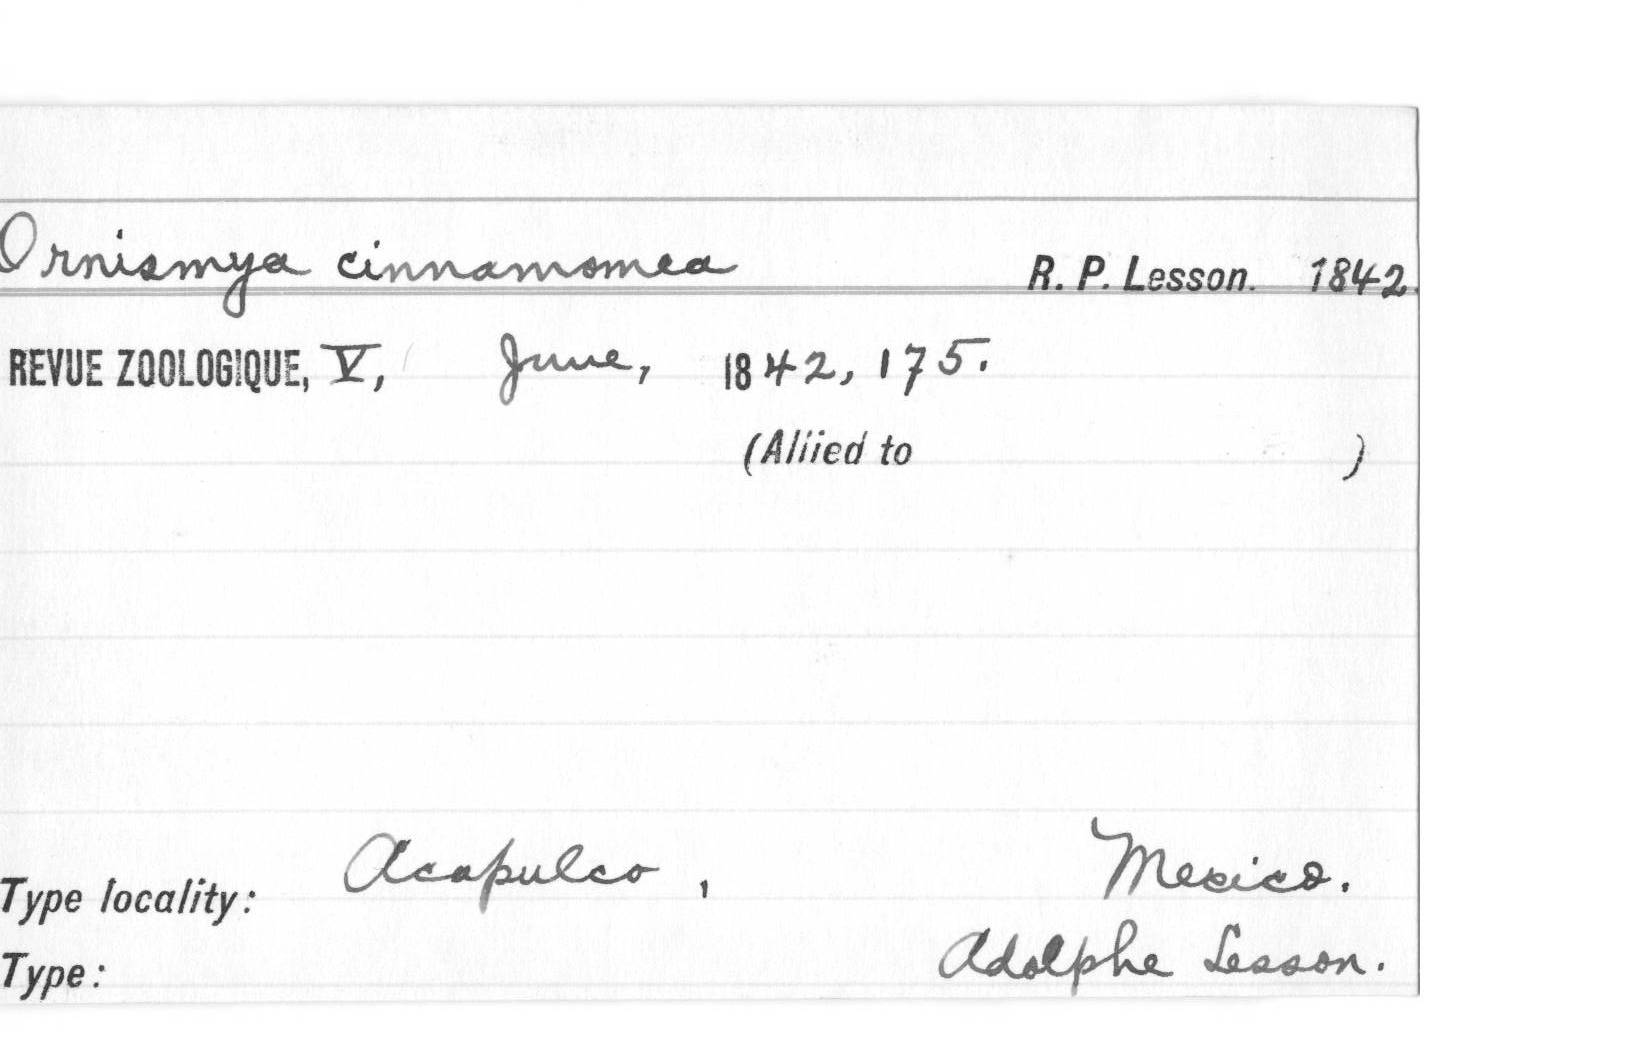 Ornismya cinnamomea R. P. Lesson. 1842.
REVUE ZOOLOGIQUE, V, June, 1842, 175.
(Allied to )
Type locality: Acapulco, Mexico.
Type: Adolphe Lesson.